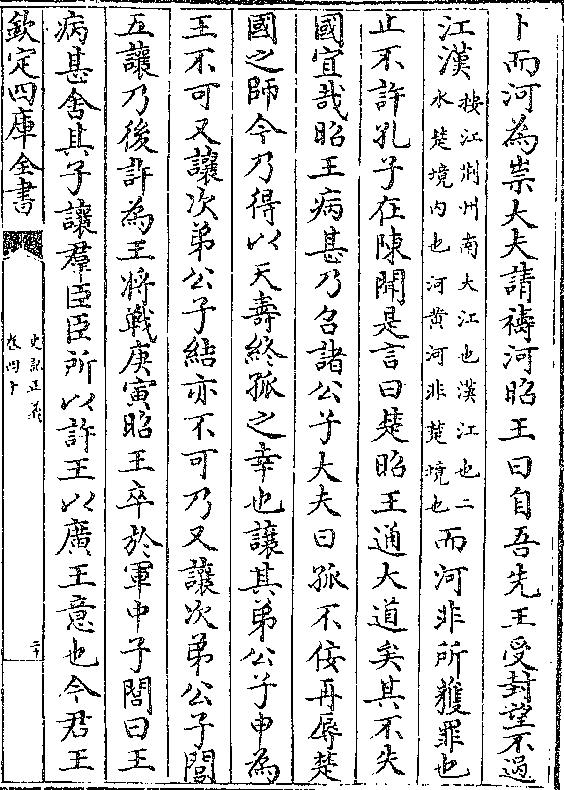 卜而河為祟大夫請禱河昭王曰自吾先王受封望不過
江漢按江荆州南大江也漢江也二水楚境内也河黄河非楚境也而河非所獲罪也
止不許孔子在陳聞是言曰楚昭王通大道矣其不失
國宜哉昭王病甚乃召諸公子大夫曰孤不佞再辱楚
國之師今乃得以天壽終孤之幸也讓其弟公子申為
王不可又讓次弟公子結亦不可乃又讓次弟公子閭
五讓乃後許為王將戰庚寅昭王卒於軍中子閭曰王
病甚舍其子讓羣臣臣所以許王以廣王意也今君王
欽定四庫全書
史記正義
卷四十
二十